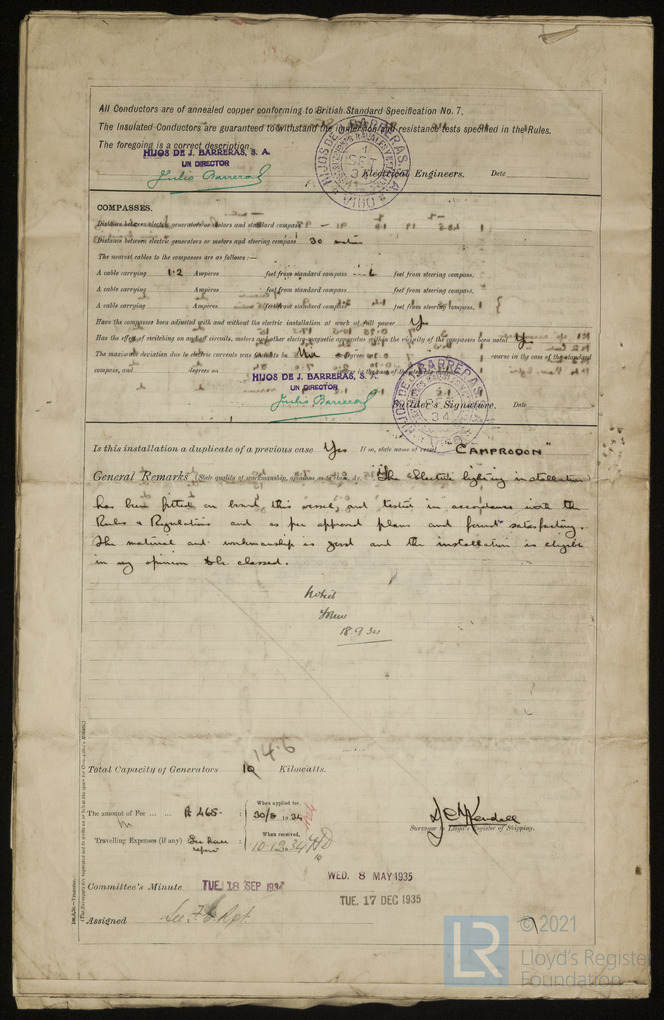 All Conductors are of annealed copper conforming to British Standard Specification No. 7.
The Insulated Conductors are guaranteed to withstand the immersion and resistance tests specified in the Rules.
The foregoing is a correct description.
HIJOS DE J. BARRERAS, S. A.
UN DIRECTOR
Julio Barreras
Electrical Engineers. Date
HIJOS DE J. BARRERAS, S. A.
VIGO
COMPASSES.
Distance between electric generators or motors and standard compass -
Distance between electric generators or motors and steering compass 30 metres
The nearest cables to the compasses are as follows:—
A cable carrying 1.2 Amperes feet from standard compass 6 feet from steering compass.
A cable carrying Amperes feet from standard compass feet from steering compass.
A cable carrying Amperes feet from standard compass feet from steering compass.
Have the compasses been adjusted with and without the electric installation at work at full power Yes
Has the effect of switching on and off circuits, motors and other electro-magnetic apparatus within the vicinity of the compasses been noted Yes
The maximum deviation due to electric currents was found to be Nil degrees on course in the case of the standard
compass, and degrees on course in the case of the steering compass.
HIJOS DE J. BARRERAS, S. A.
UN DIRECTOR
Julio Barreras
Builder's Signature. Date
Is this installation a duplicate of a previous case Yes If so, state name of vessel "CAMPRODON"
General Remarks (State quality of workmanship, opinions as to class, &c. The electric lighting installation
has been fitted on board this vessel, and tested in accordance with the
Rules & Regulations and as per approved plans and found satisfactory.
The material and workmanship is good and the installation is eligible
in my opinion to be classed.
Noted
18.9.34
14.6
Total Capacity of Generators 10 Kilowatts.
The amount of Fee ... ... 465- When applied for, 30/8 1934
Travelling Expenses (if any) See hull report When received, 10.12.34
Surveyor to Lloyd's Register of Shipping.
Committee's Minute TUE. 18 SEP 1934
WED. 8 MAY 1935
TUE. 17 DEC 1935
Assigned See F.E. Rpt.
LR
© 2021
Lloyd's Register
Foundation